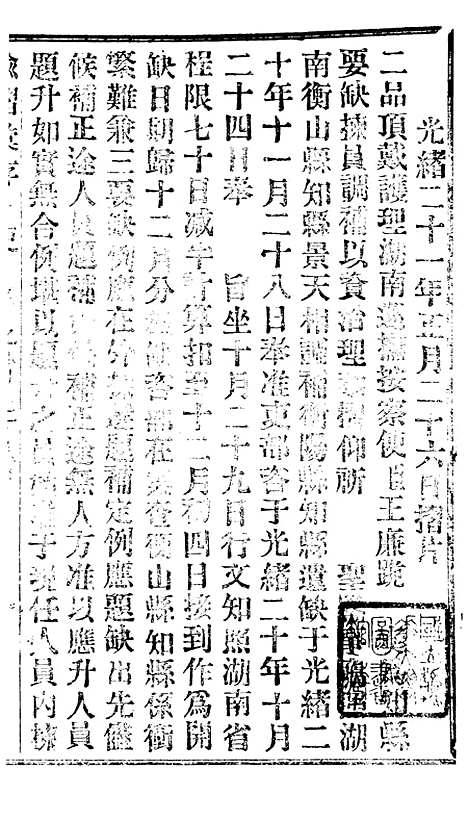 光緒二十一年正月二十六日摺片
二品頂戴護理湖南巡撫按察使臣王廉跪 縣
要缺揀員調補以資治理 摺仰祈 聖 湖
南衡山縣知縣景天相調補衡陽縣知縣遺缺于光緒二
十年十一月二十八日奉准吏部咨于光緒二十年十月
二十四日奉 旨坐十月二十九日行文知照湖南省
程限七十日減半計算扣至十二月初四日接到作為開
缺日期歸十二月分 咨部在案查衡山縣知縣係衝
繁難兼三要缺例應在外揀選題補定例應題缺出先儘
候補正途人員題補 補正途無人方准以應升人員
題升如實無合例堪以題 之員 于現任人員內揀